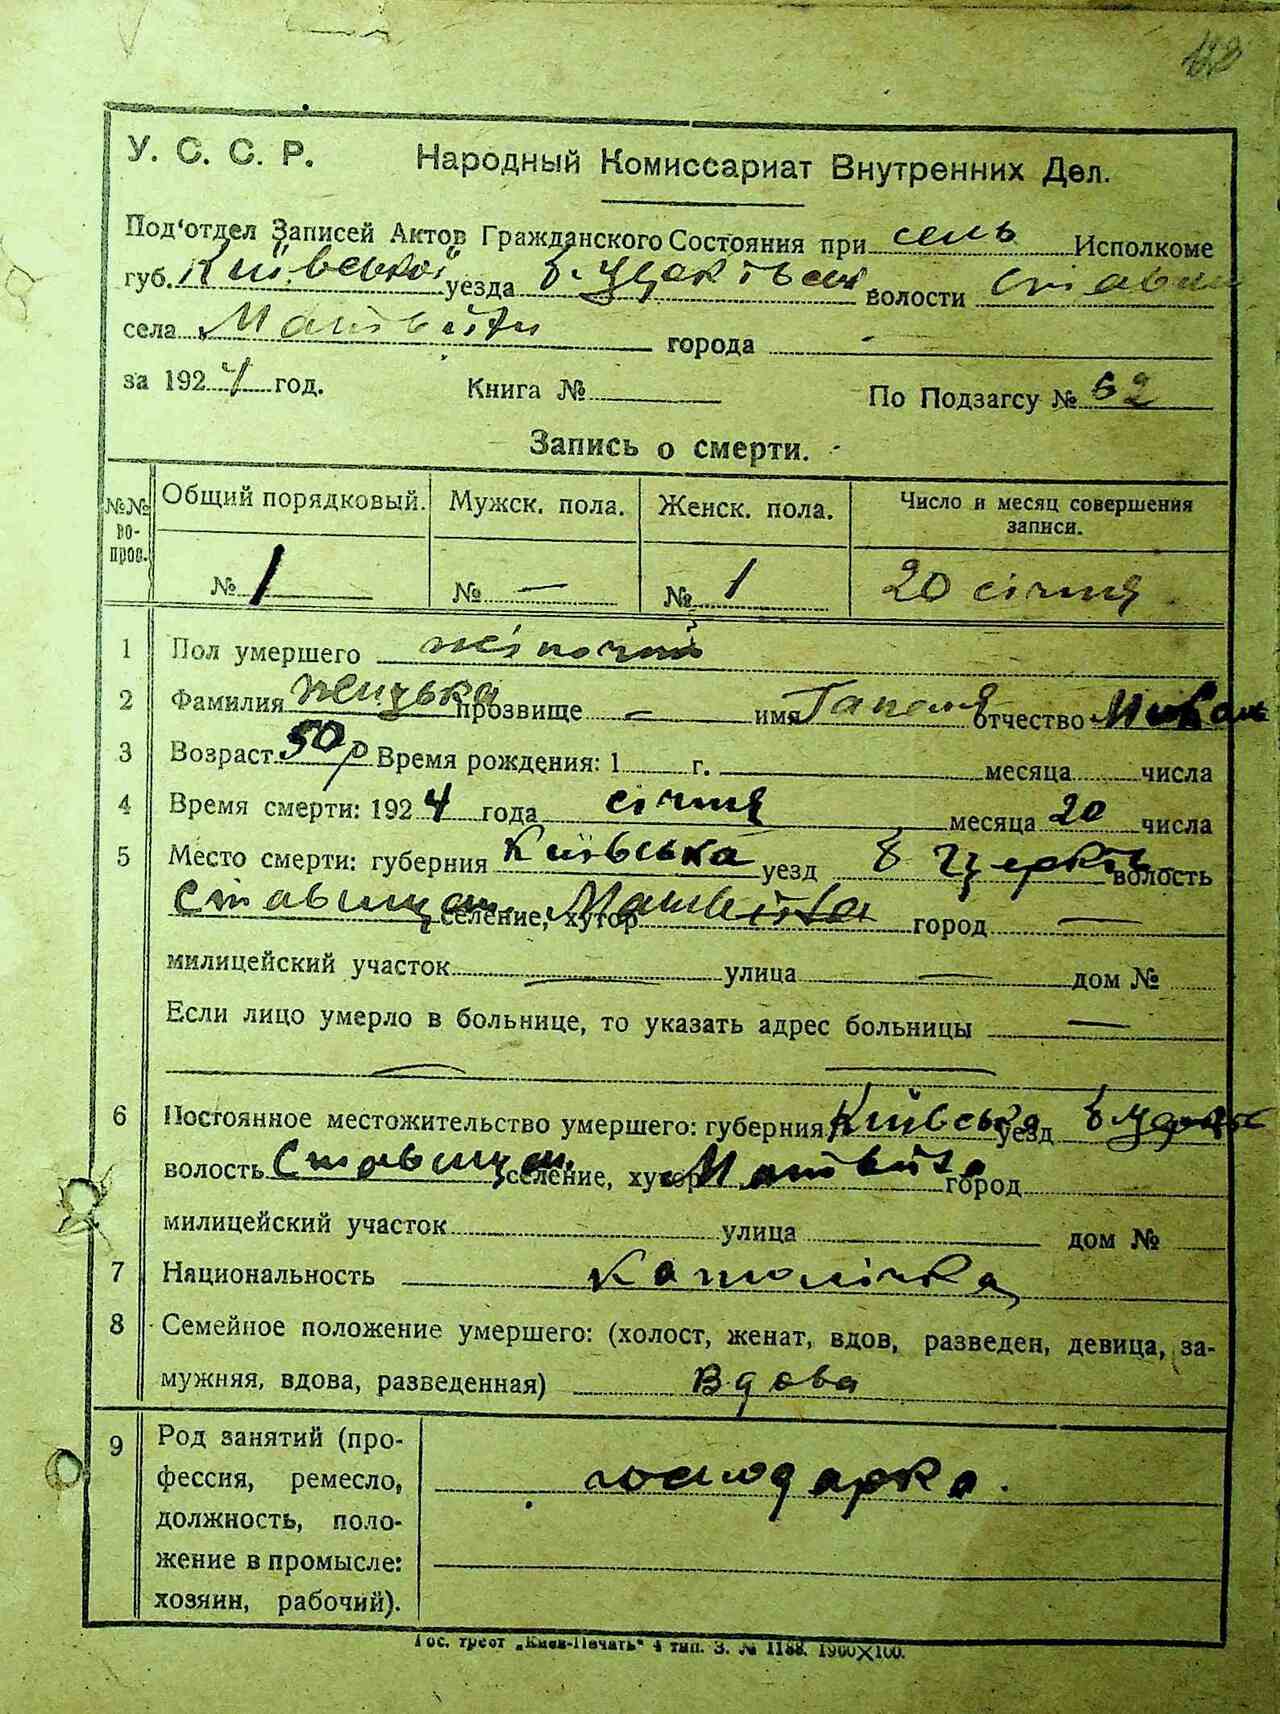 У. С. С. Р. Народный Комиссариат Внутренних Дел.
Под'отдел Записей Актов Гражданского Состояния при сель Исполкоме
губ. Київської уезда волости
села города -
за 1924 год. Книга № По Подзагсу № 62
Запись о смерти.
№№ вопров. Общий порядковый. Мужск. пола. Женск. пола. Число и месяц совершения записи.
№ 1 № — № 1 20 січня
1 Пол умершего жіночий
2 Фамилия прозвище — имя отчество
3 Возраст 50 р Время рождения: 1 г. месяца числа
4 Время смерти: 1924 года січня месяца 20 числа
5 Место смерти: губерния Київська уезд Б Церків волость
Ставищан селение, хутор город —
милицейский участок — улица — дом №
Если лицо умерло в больнице, то указать адрес больницы —
— —
6 Постоянное местожительство умершего: губерния Київська уезд
волость Ставищан селение, хутор город
милицейский участок улица дом №
7 Национальность католічка
8 Семейное положение умершего: (холост, женат, вдов, разведен, девица, за-
мужняя, вдова, разведенная) Вдова
9 Род занятий (про-
фессия, ремесло, господарка.
должность, поло-
жение в промысле:
хозяин, рабочий).
Гос. трест „Киев-Печать" 4 тип. З. № 1188. 1900×100.